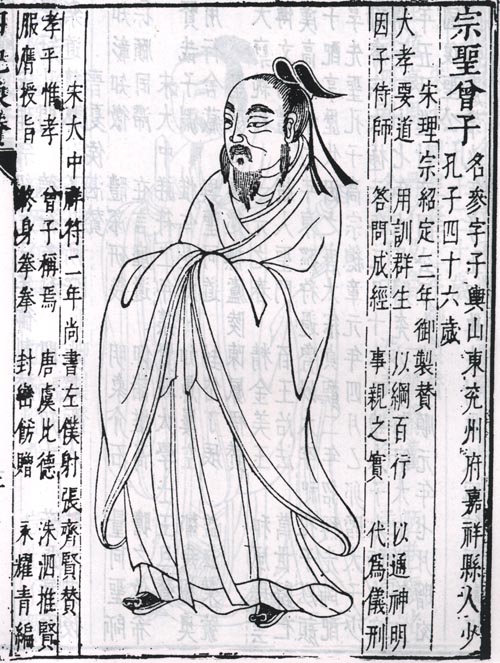 宗聖曾子 名參字子輿山東兗州府嘉祥縣人少
孔子四十六歲
宋理宗紹定三年御製贊
大孝要道 用訓群生 以綱百行 以通神明
因子侍師 答問成經 事親之實 代爲儀刑
宋大中祥符二年尚書左僕射張齊賢贊
孝乎惟孝 曾子稱焉 唐虞比德 洙泗推賢
服膺授旨 終身拳拳 封巒飭贈 永耀青編